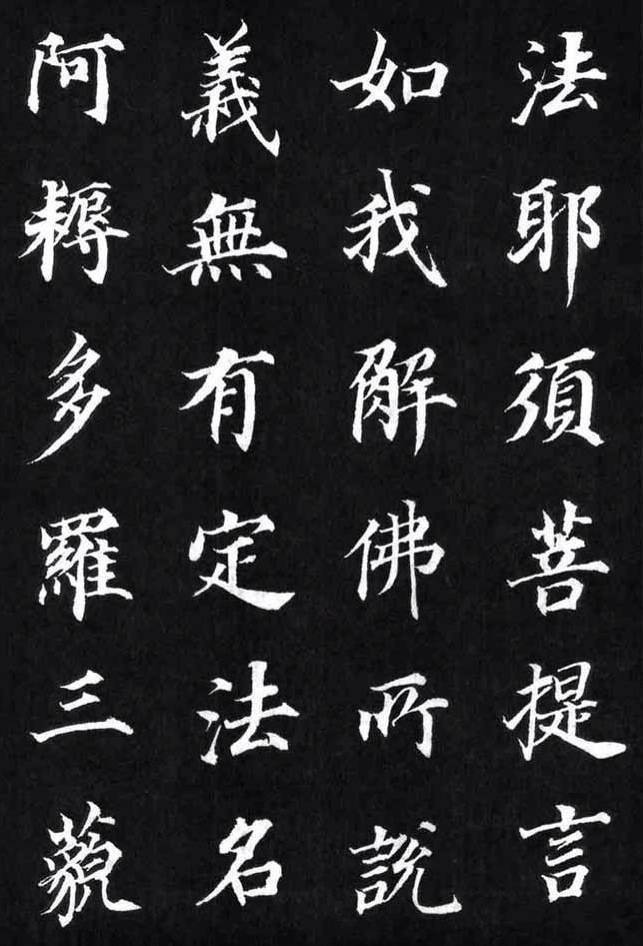 法耶須菩提言
如我解佛所說
義無有定法名
阿耨多羅三藐